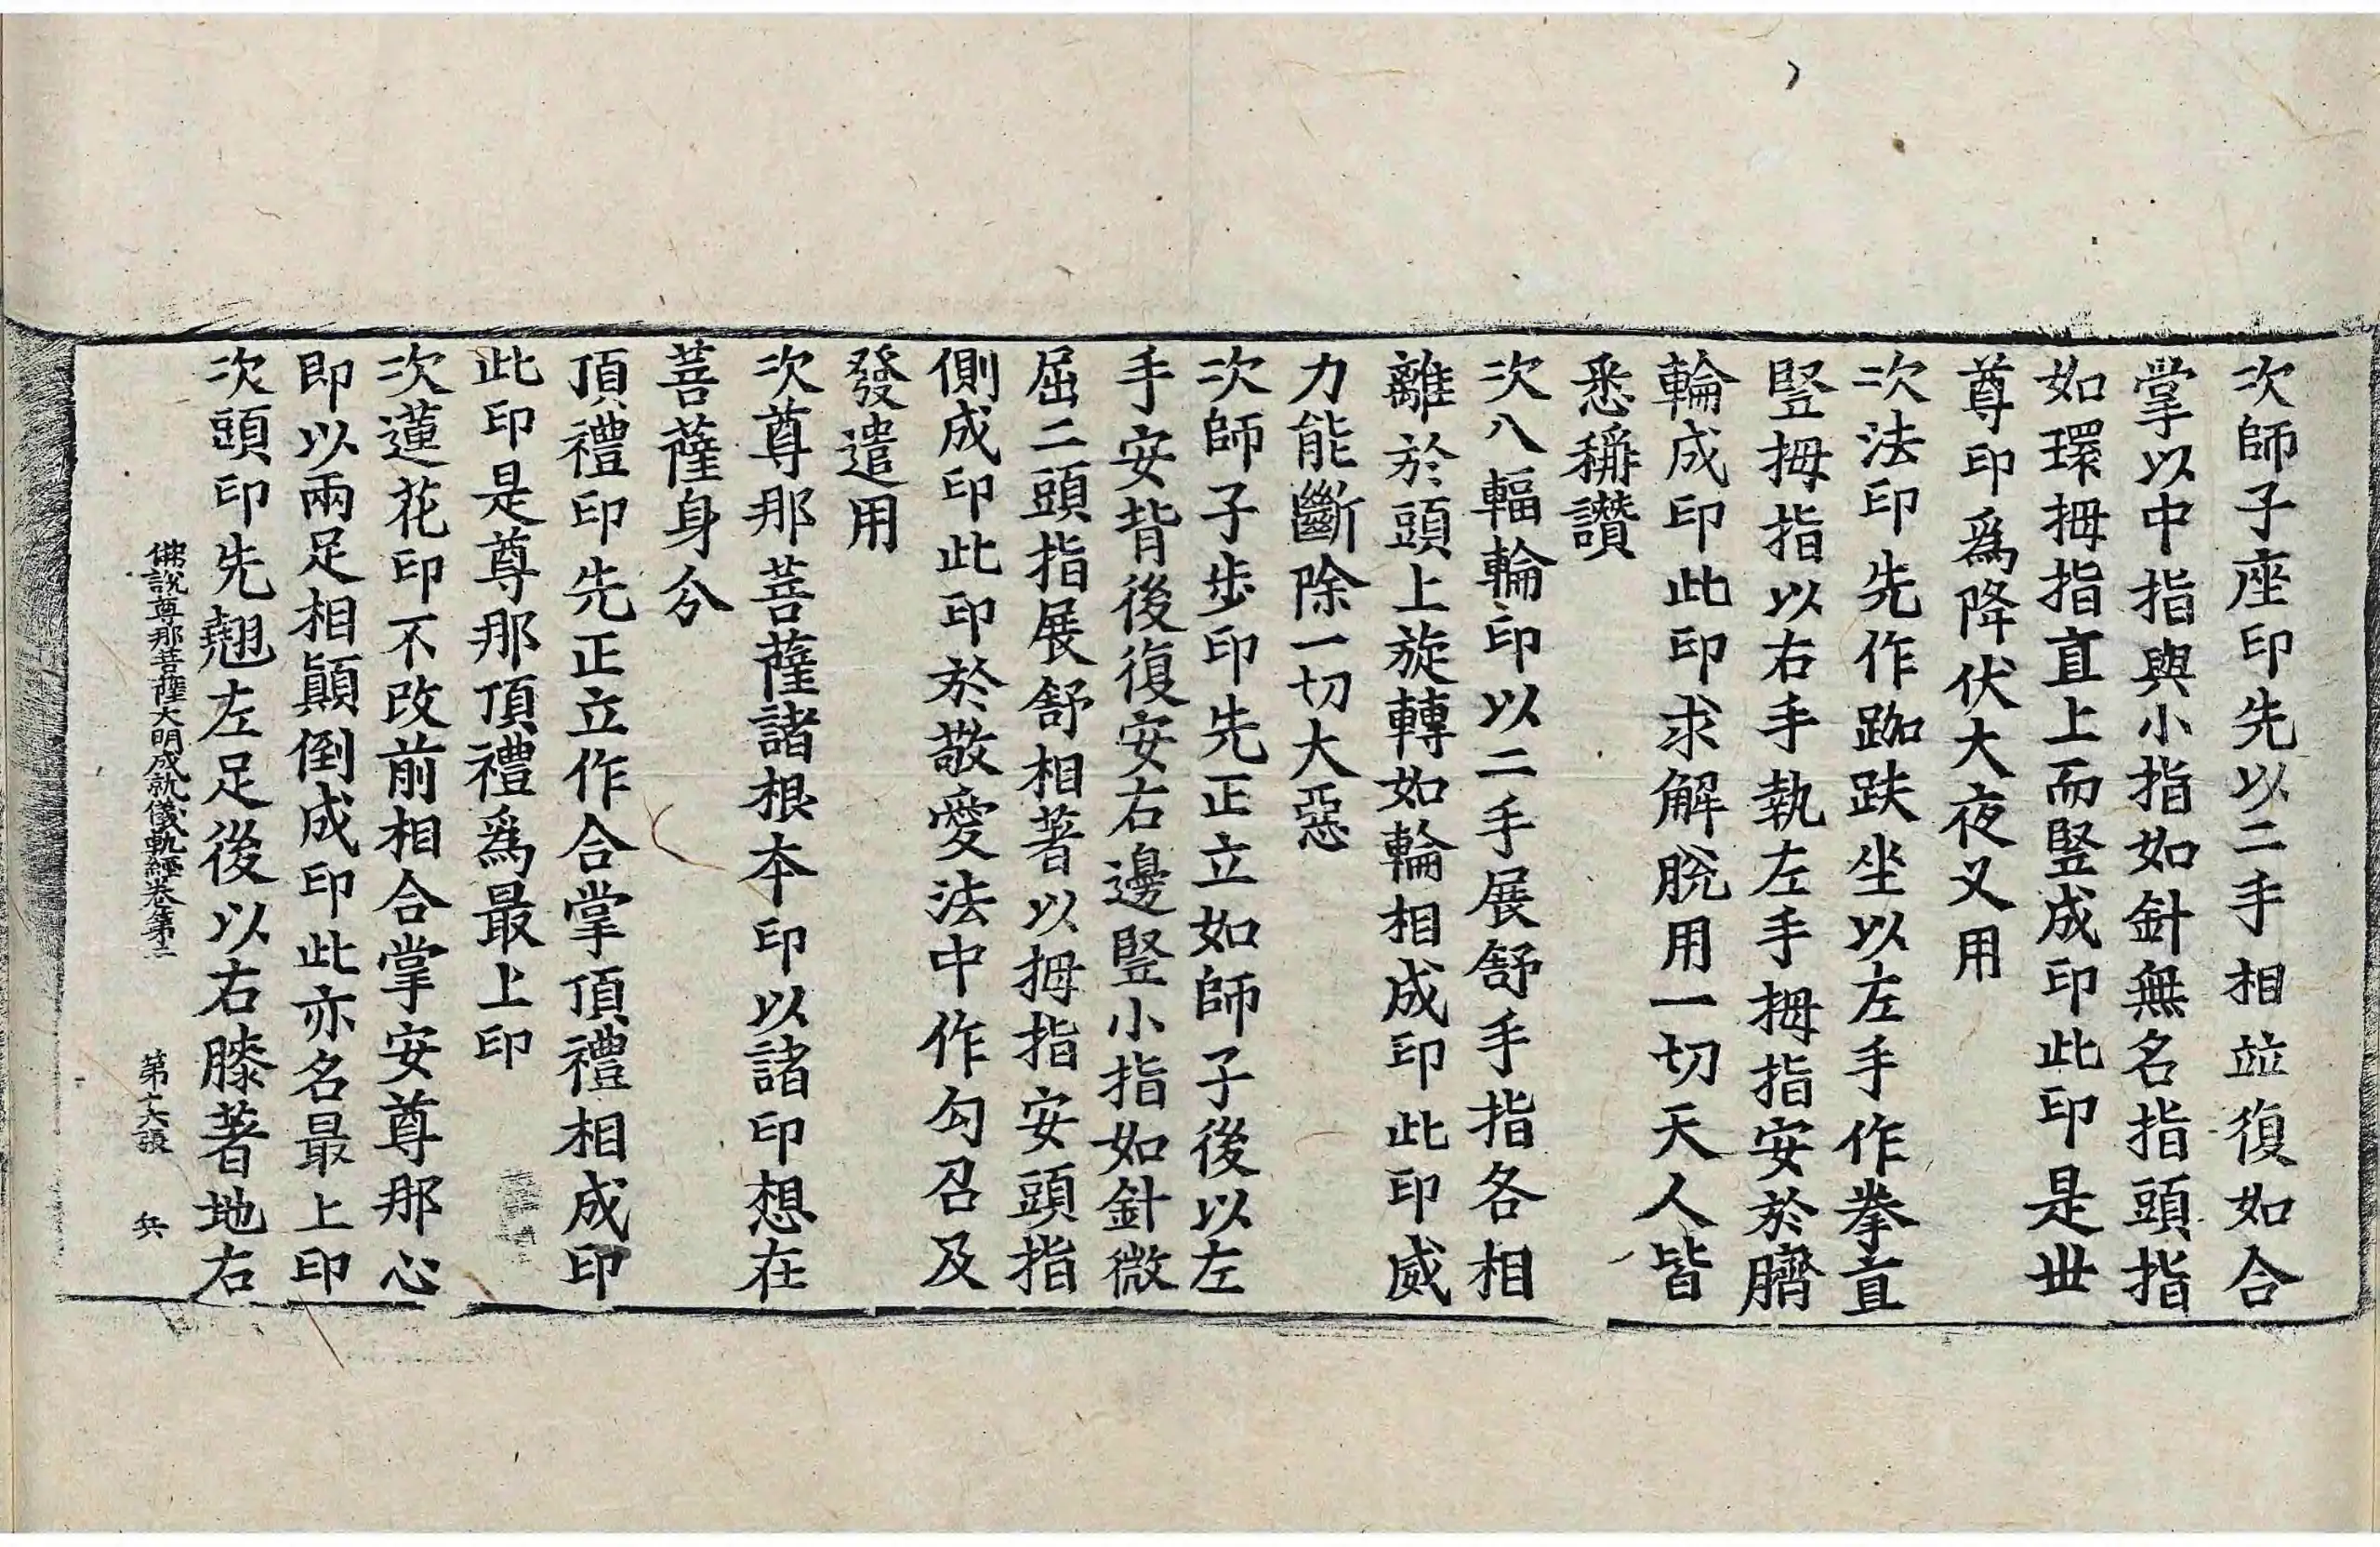 次師子座印先以二手相竝復如合
掌以中指與小指如針無名指頭指
如環拇指直上而竪成印此印是世
尊印爲降伏大夜叉用
次法印先作跏趺坐以左手作拳直
竪拇指以右手執左手拇指安於臍
輪成印此印求解脫用一切天人皆
悉稱讚
次八輻輪印以二手展舒手指各相
離於頭上旋轉如輪相成印此印威
力能斷除一切大惡
次師子步印先正立如師子後以左
手安背後復安右邊竪小指如針微
屈二頭指展舒相著以拇指安頭指
側成印此印於敬愛法中作勾召及
發遣用
次尊那菩薩諸根本印以諸印想在
菩薩身分
頂禮印先正立作合掌頂禮相成印
此印是尊那頂禮爲最上印
次蓮花印不改前相合掌安尊那心
即以兩足相顛倒成印此亦名最上印
次頭印先翹左足後以右膝著地右
佛說尊那菩薩大明成就儀軌經卷第三 第十六張 兵